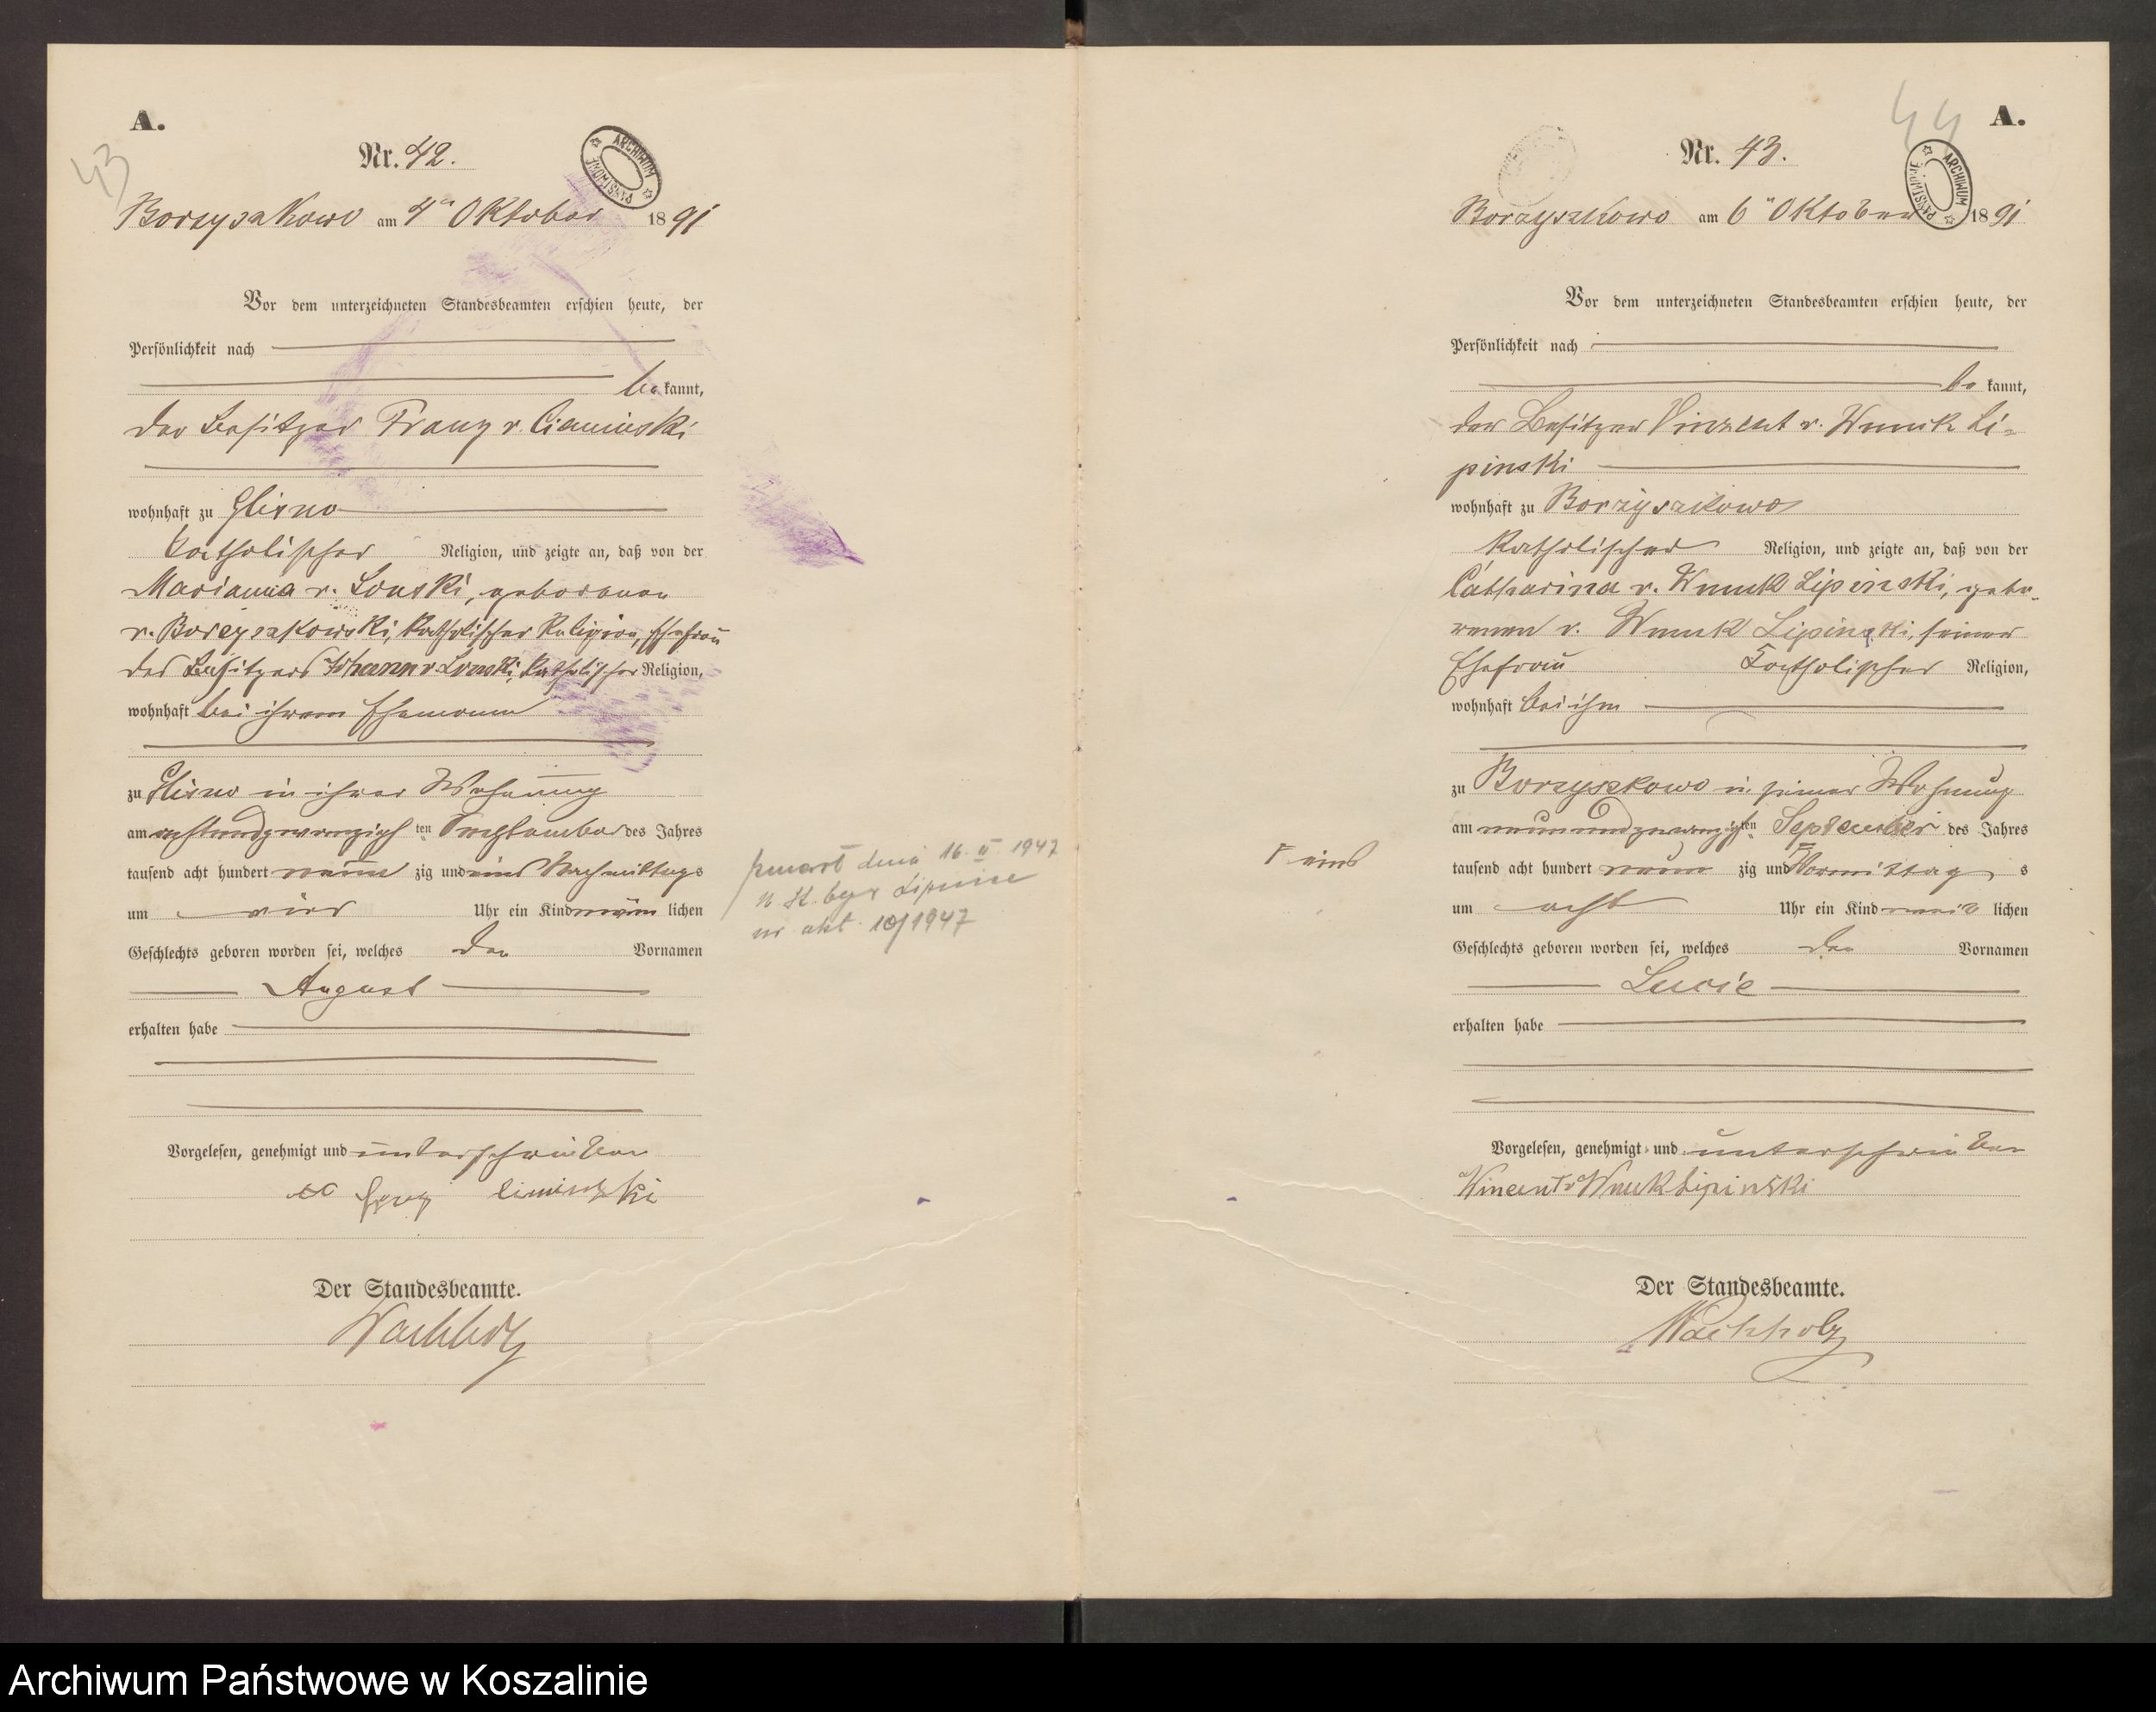 A.
43
Nr. 42.
ARCHIWUM PAŃSTWOWE
Borzyszkowo am 4ten Oktober 1891
Vor dem unterzeichneten Standesbeamten erschien heute, der
Persönlichkeit nach
bekannt,
der Besitzer Franz v. Cieminski
wohnhaft zu Glisno
katholischer Religion, und zeigte an, daß von der
Marianna v. Lonski, geborenen
v. Borzyszkowski, katholischer Religion, Ehefrau
des Besitzers Johann v. Lonski, katholischer Religion,
wohnhaft bei ihrem Ehemann
zu Glisno in ihrer Wohnung
am achtundzwanzigsten September des Jahres
tausend acht hundert neunzig und eins Nachmittags
um vier Uhr ein Kind männlichen
Geschlechts geboren worden sei, welches den Vornamen
August
erhalten habe
Vorgelesen, genehmigt und unterschrieben
Der Standesbeamte.
Wachholz
dnia 16 II 1947
Lipnica
nr akt 10/1947
44
A.
Nr. 43.
ARCHIWUM PAŃSTWOWE
Borzyszkowo am 6ten Oktober 1891
Vor dem unterzeichneten Standesbeamten erschien heute, der
Persönlichkeit nach
bekannt,
der Besitzer Vinzent v. Wnuk Li-
pinski
wohnhaft zu Borzyszkowo
katholischer Religion, und zeigte an, daß von der
Catharina v. Wnuk Lipinski, gebo-
renen v. Wnuk Lipinski, seiner
Ehefrau katholischer Religion,
wohnhaft bei ihm
zu Borzyszkowo in seiner Wohnung
am neunundzwanzigsten September des Jahres
tausend acht hundert neunzig und Γ Vormittags
Γ eins
um acht Uhr ein Kind weiblichen
Geschlechts geboren worden sei, welches den Vornamen
Lucie
erhalten habe
Vorgelesen, genehmigt und unterschrieben
Wincent v Wnuk Lipinski
Der Standesbeamte.
Wachholz
Archiwum Państwowe w Koszalinie